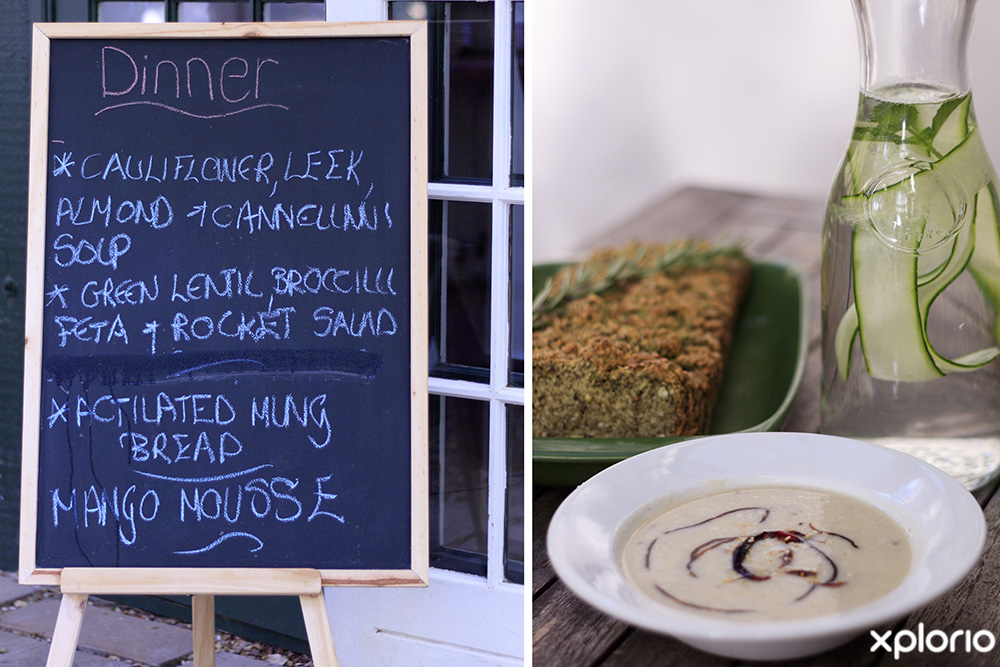 Dinner
* CAULIFLOWER, LEEK,
ALMOND + CANNELLINIS
SOUP
* GREEN LENTIL, BROCCILLI
FETA + ROCKET SALAD
* ACTILATED MUNG
BREAD
MANGO MOUSSE
xplorio